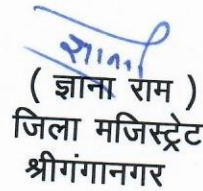 ( ज्ञाना राम )
जिला मजिस्ट्रेट
श्रीगंगानगर